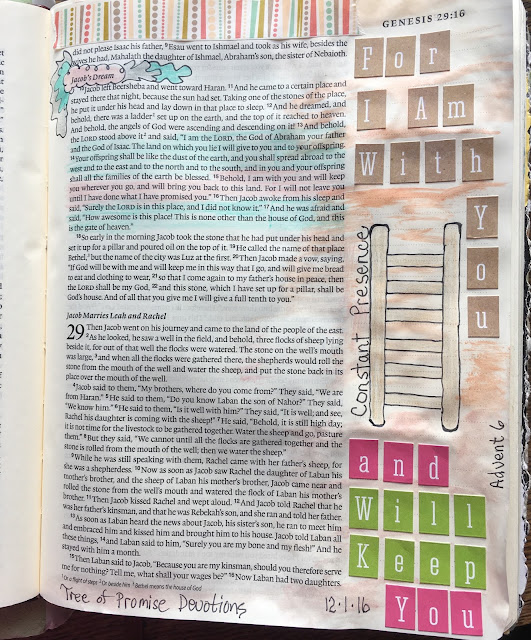 GENESIS 29:16
did not please Isaac his father, 9Esau went to Ishmael and took as his wife, besides the
wives he had, Mahalath the daughter of Ishmael, Abraham's son, the sister of Nebaioth.
Jacob's Dream
10Jacob left Beersheba and went toward Haran. 11And he came to a certain place and
stayed there that night, because the sun had set. Taking one of the stones of the place,
he put it under his head and lay down in that place to sleep. 12And he dreamed, and
behold, there was a ladder1 set up on the earth, and the top of it reached to heaven.
And behold, the angels of God were ascending and descending on it! 13And behold,
the LORD stood above it2 and said, "I am the LORD, the God of Abraham your father
and the God of Isaac. The land on which you lie I will give to you and to your offspring.
14Your offspring shall be like the dust of the earth, and you shall spread abroad to the
west and to the east and to the north and to the south, and in you and your offspring
shall all the families of the earth be blessed. 15Behold, I am with you and will keep
you wherever you go, and will bring you back to this land. For I will not leave you
until I have done what I have promised you." 16Then Jacob awoke from his sleep and
said, "Surely the LORD is in this place, and I did not know it." 17And he was afraid and
said, "How awesome is this place! This is none other than the house of God, and this
is the gate of heaven."
18So early in the morning Jacob took the stone that he had put under his head and
set it up for a pillar and poured oil on the top of it. 19He called the name of that place
Bethel,3 but the name of the city was Luz at the first. 20Then Jacob made a vow, saying,
"If God will be with me and will keep me in this way that I go, and will give me bread
to eat and clothing to wear, 21so that I come again to my father's house in peace, then
the LORD shall be my God, 22and this stone, which I have set up for a pillar, shall be
God's house. And of all that you give me I will give a full tenth to you."
Jacob Marries Leah and Rachel
29 Then Jacob went on his journey and came to the land of the people of the east.
2As he looked, he saw a well in the field, and behold, three flocks of sheep lying
beside it, for out of that well the flocks were watered. The stone on the well's mouth
was large, 3and when all the flocks were gathered there, the shepherds would roll the
stone from the mouth of the well and water the sheep, and put the stone back in its
place over the mouth of the well.
4Jacob said to them, "My brothers, where do you come from?" They said, "We are
from Haran." 5He said to them, "Do you know Laban the son of Nahor?" They said,
"We know him." 6He said to them, "Is it well with him?" They said, "It is well; and see,
Rachel his daughter is coming with the sheep!" 7He said, "Behold, it is still high day;
it is not time for the livestock to be gathered together. Water the sheep and go, pasture
them." 8But they said, "We cannot until all the flocks are gathered together and the
stone is rolled from the mouth of the well; then we water the sheep."
9While he was still speaking with them, Rachel came with her father's sheep, for
she was a shepherdess. 10Now as soon as Jacob saw Rachel the daughter of Laban his
mother's brother, and the sheep of Laban his mother's brother, Jacob came near and
rolled the stone from the well's mouth and watered the flock of Laban his mother's
brother. 11Then Jacob kissed Rachel and wept aloud. 12And Jacob told Rachel that he
was her father's kinsman, and that he was Rebekah's son, and she ran and told her father.
13As soon as Laban heard the news about Jacob, his sister's son, he ran to meet him
and embraced him and kissed him and brought him to his house. Jacob told Laban all
these things, 14and Laban said to him, "Surely you are my bone and my flesh!" And he
stayed with him a month.
15Then Laban said to Jacob, "Because you are my kinsman, should you therefore serve
me for nothing? Tell me, what shall your wages be?" 16Now Laban had two daughters.
1 Or a flight of steps 2 Or beside him 3 Bethel means the house of God
Tree of Promise Devotions
12.1.16
For
I Am
With
You
Constant Presence
and
Will
Keep
You
Advent 6